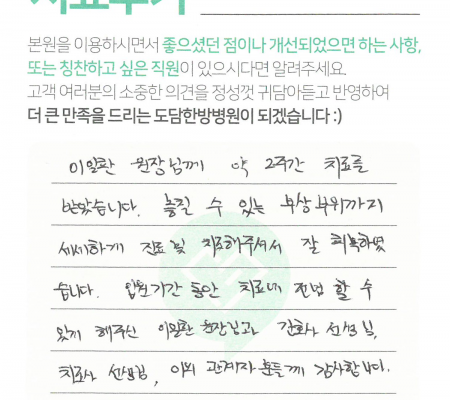 치료후기
본원을 이용하시면서 좋으셨던 점이나 개선되었으면 하는 사항,
또는 칭찬하고 싶은 직원이 있으시다면 알려주세요.
고객 여러분의 소중한 의견을 정성껏 귀담아듣고 반영하여
더 큰 만족을 드리는 도담한방병원이 되겠습니다 :)
이일환 원장님께 약 2주간 치료를
받았습니다. 흘릴 수 있는 부상부위까지
세세하게 진료 및 치료해주셔서 잘 회복하였
습니다. 입원기간 동안 치료에 전념 할 수
있게 해주신 이일환 원장님과 간호사 선생님,
치료사 선생님, 이외 관계자 분들께 감사합니다.